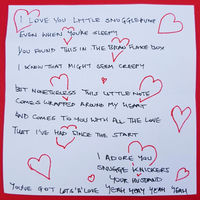 I LOVE YOU LITTLE SNUGGLEPUNK
EVEN WHEN YOU'RE SLEEPY
YOU FOUND THIS IN THE BIOND PLACE BOX
I KNOW THAT MIGHT SEEM CREEPY
BUT NONETHELESS THIS LITTLE NOTE
COMES WRAPPED AROUND MY HEART
AND COMES TO YOU WITH ALL THE LOVE
THAT I'VE HAD SINCE THE START
I ADORE YOU
SNUGGE KNICKERS
YOUR HUSBAND
YOU'VE GOT LOTS 'A' LOVE YEAH YEAH YEAH YEAH